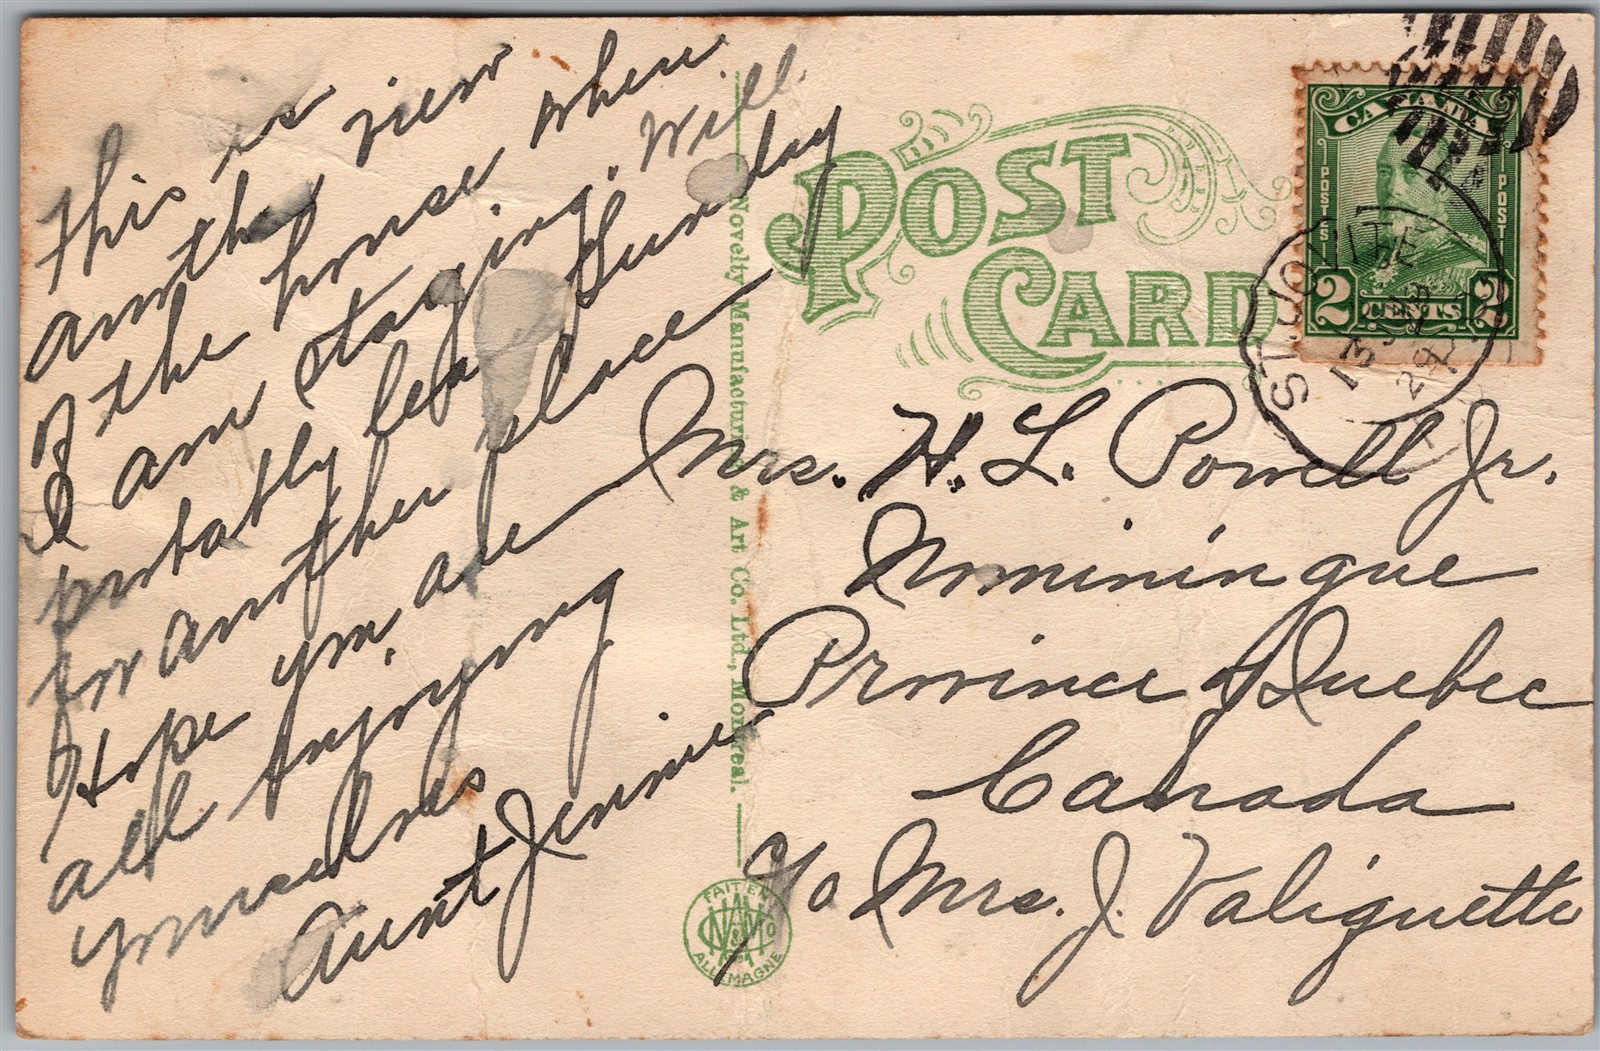 This is
another view
of the house where
I am staying. Will
probably leave Sunday
for another place
Hope you are
all enjoying
yourselves
Aunt Jennie
Novelty Manufacturing & Art Co. Ltd., Montreal.
POST
CARD
CANADA
POSTES
POSTAGE
2 CENTS 2
ST. JOVITE
13
29
Mrs. H. L. Powell Jr.
Nominingue
Province of Quebec
Canada
c/o Mrs. J. Valiquette
FAIT EN
ALLEMAGNE